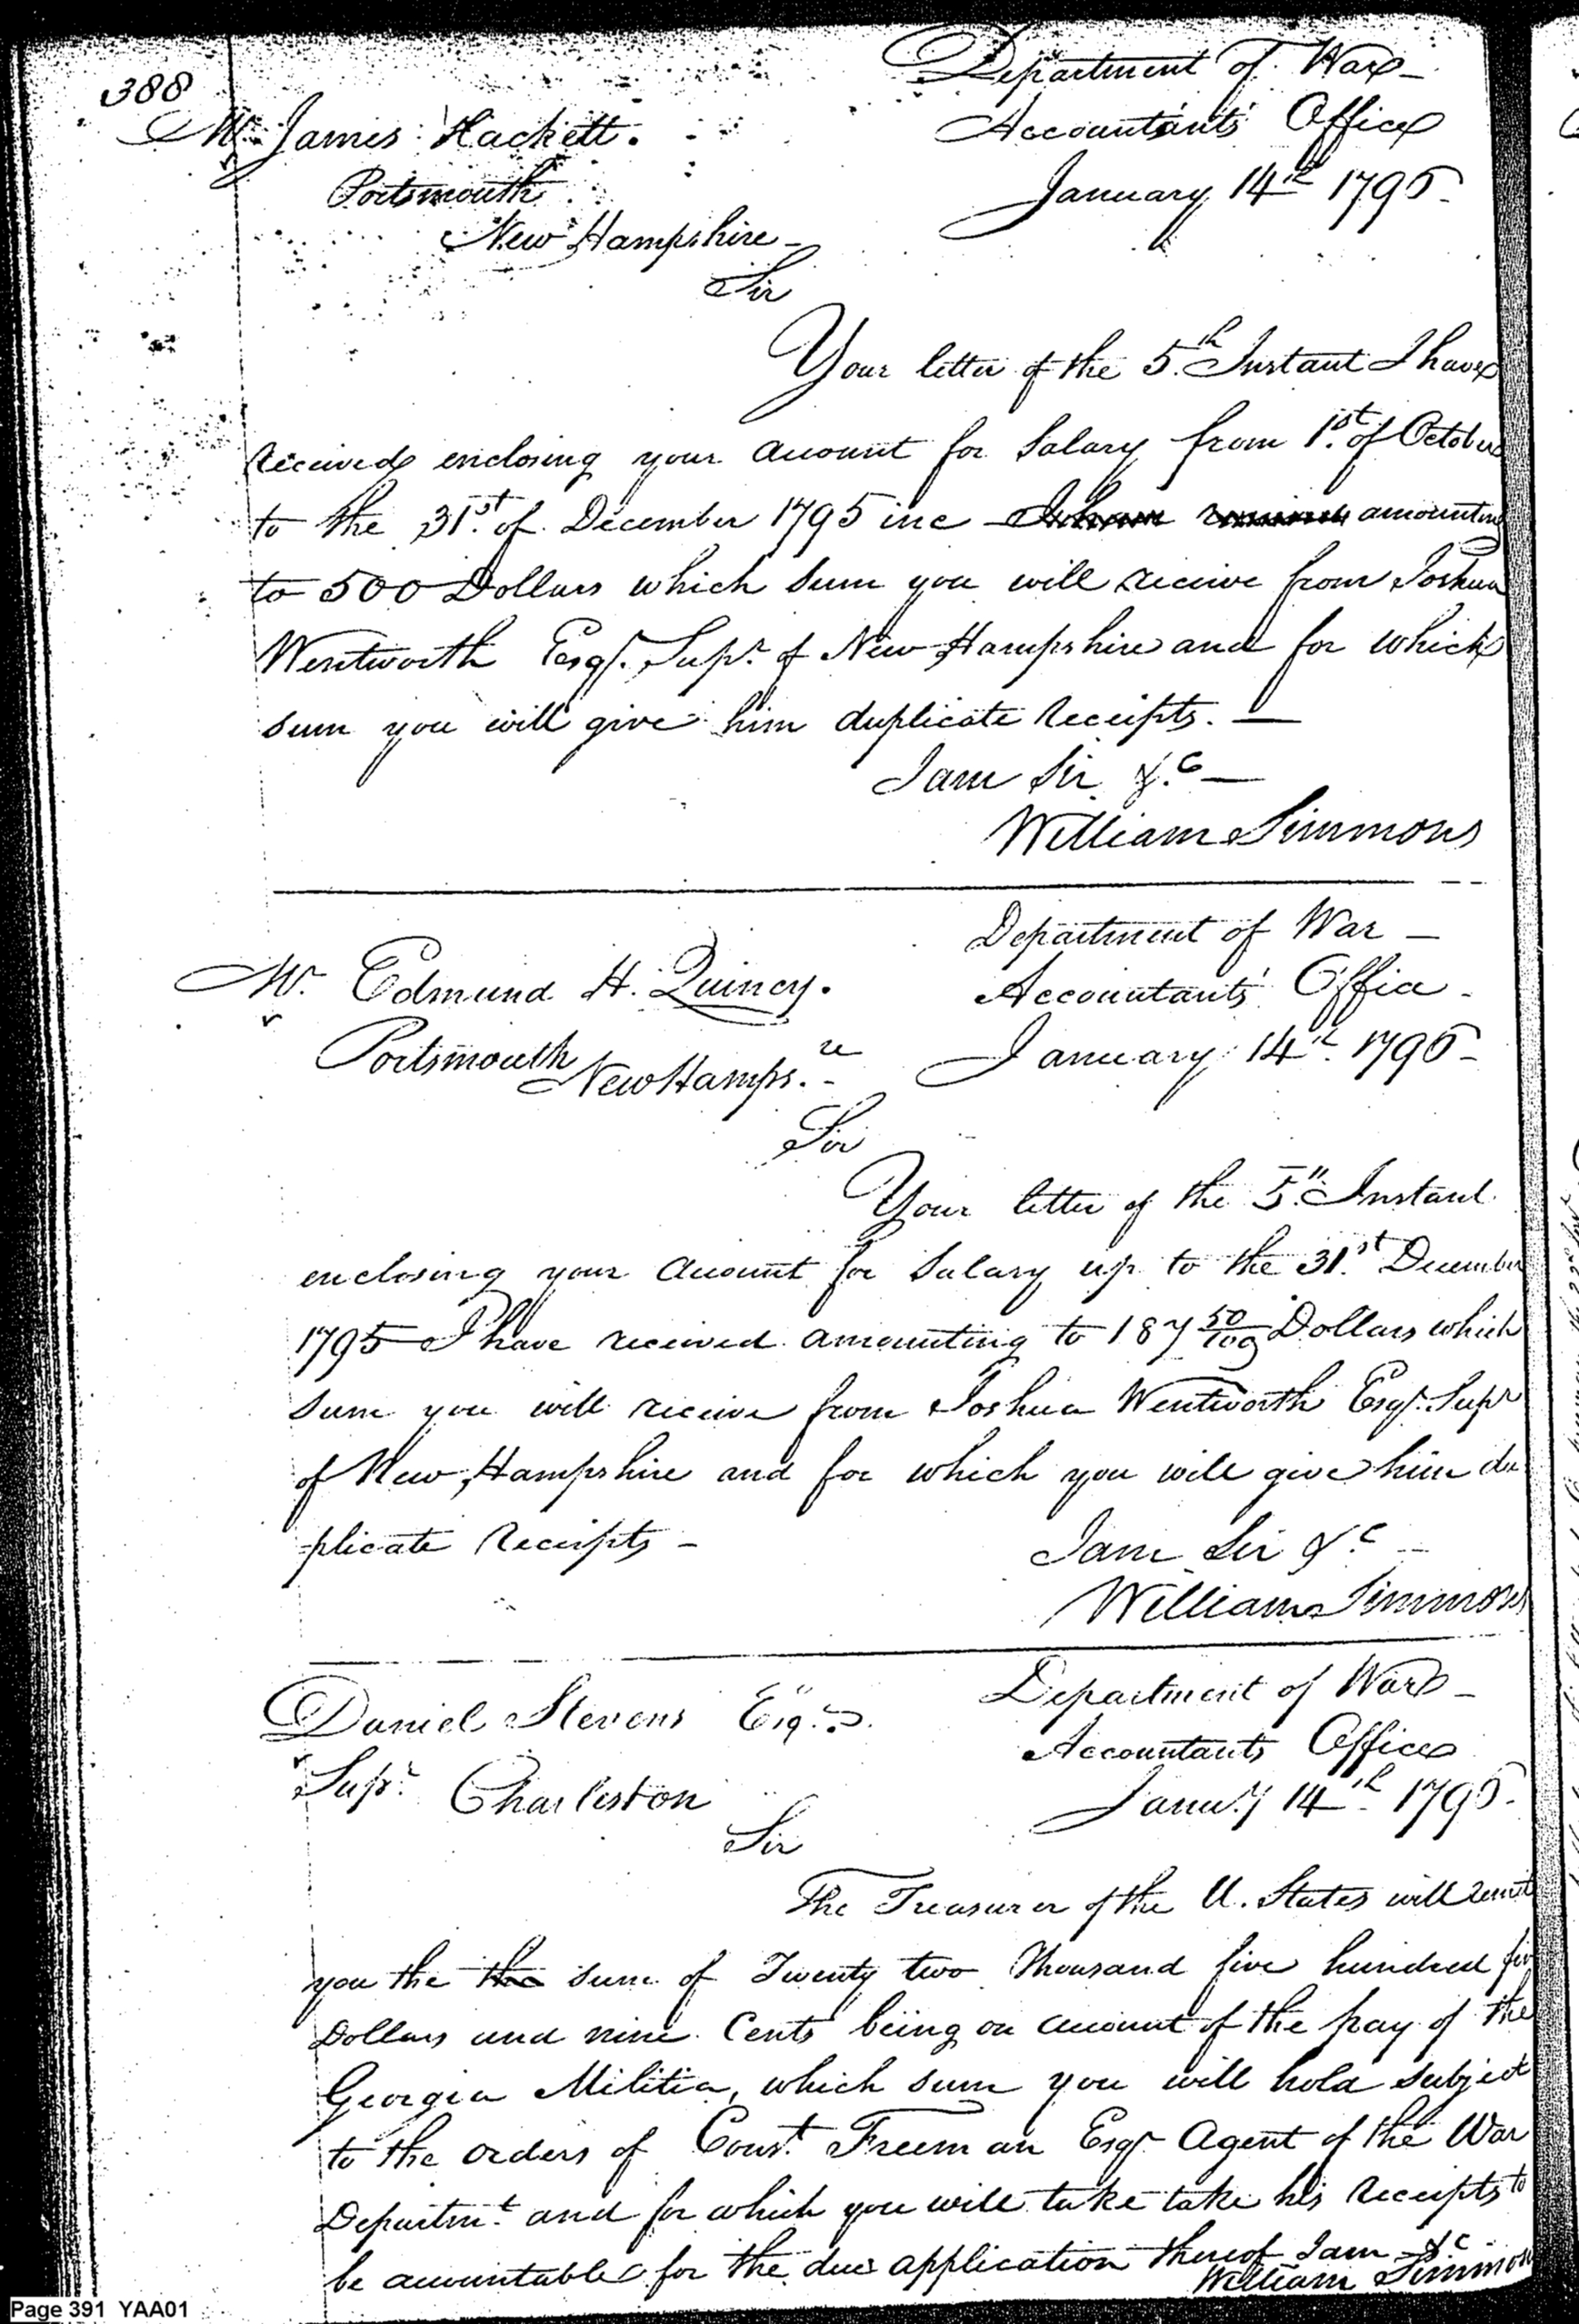 388
Department of War
Mr. James Hackett.
Accountants Office
Portsmouth
January 14th 1796
New Hampshire
Sir
Your letter of the 5th Instant I have
received enclosing your account for Salary from 1st of October
to the 31st of December 1795 inc amounting
to 500 Dollars which sum you will receive from Joshua
Wentworth Esqr. Supr. of New Hampshire and for which
sum you will give him duplicate Receipts. —
I am Sir &c —
William Simmons
Department of War —
Mr. Edmund H. Quincy.
Accountants Office
Portsmouth
January 14th 1796
New Hamps.re
Sir
Your letter of the 5th Instant
enclosing your account for Salary up to the 31st December
1795 I have received amounting to 187 50/100 Dollars which
sum you will receive from Joshua Wentworth Esqr. Supr
of New Hampshire and for which you will give him du
plicate Receipts —
I am Sir &c —
William Simmons
Department of War —
Daniel Stevens Esq.
Accountants Office
Supr. Charleston
Janu.y 14th 1796
Sir
The Treasurer of the U. States will remit
you the the sum of Twenty two Thousand five hundred five
Dollars and nine Cents being on account of the pay of the
Georgia Militia, which sum you will hold subject
to the orders of Const. Freeman Esqr Agent of the War
Departmt. and for which you will take take his Receipts to
be accountable for the due application thereof I am &c
William Simmons
Page 391 YAA01